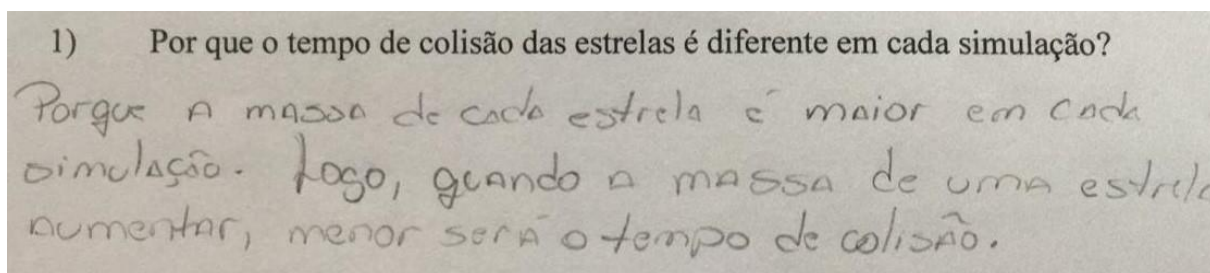 1) Por que o tempo de colisão das estrelas é diferente em cada simulação?
Porque a massa de cada estrela é maior em cada
simulação. Logo, quando a massa de uma estrela
aumentar, menor será o tempo de colisão.